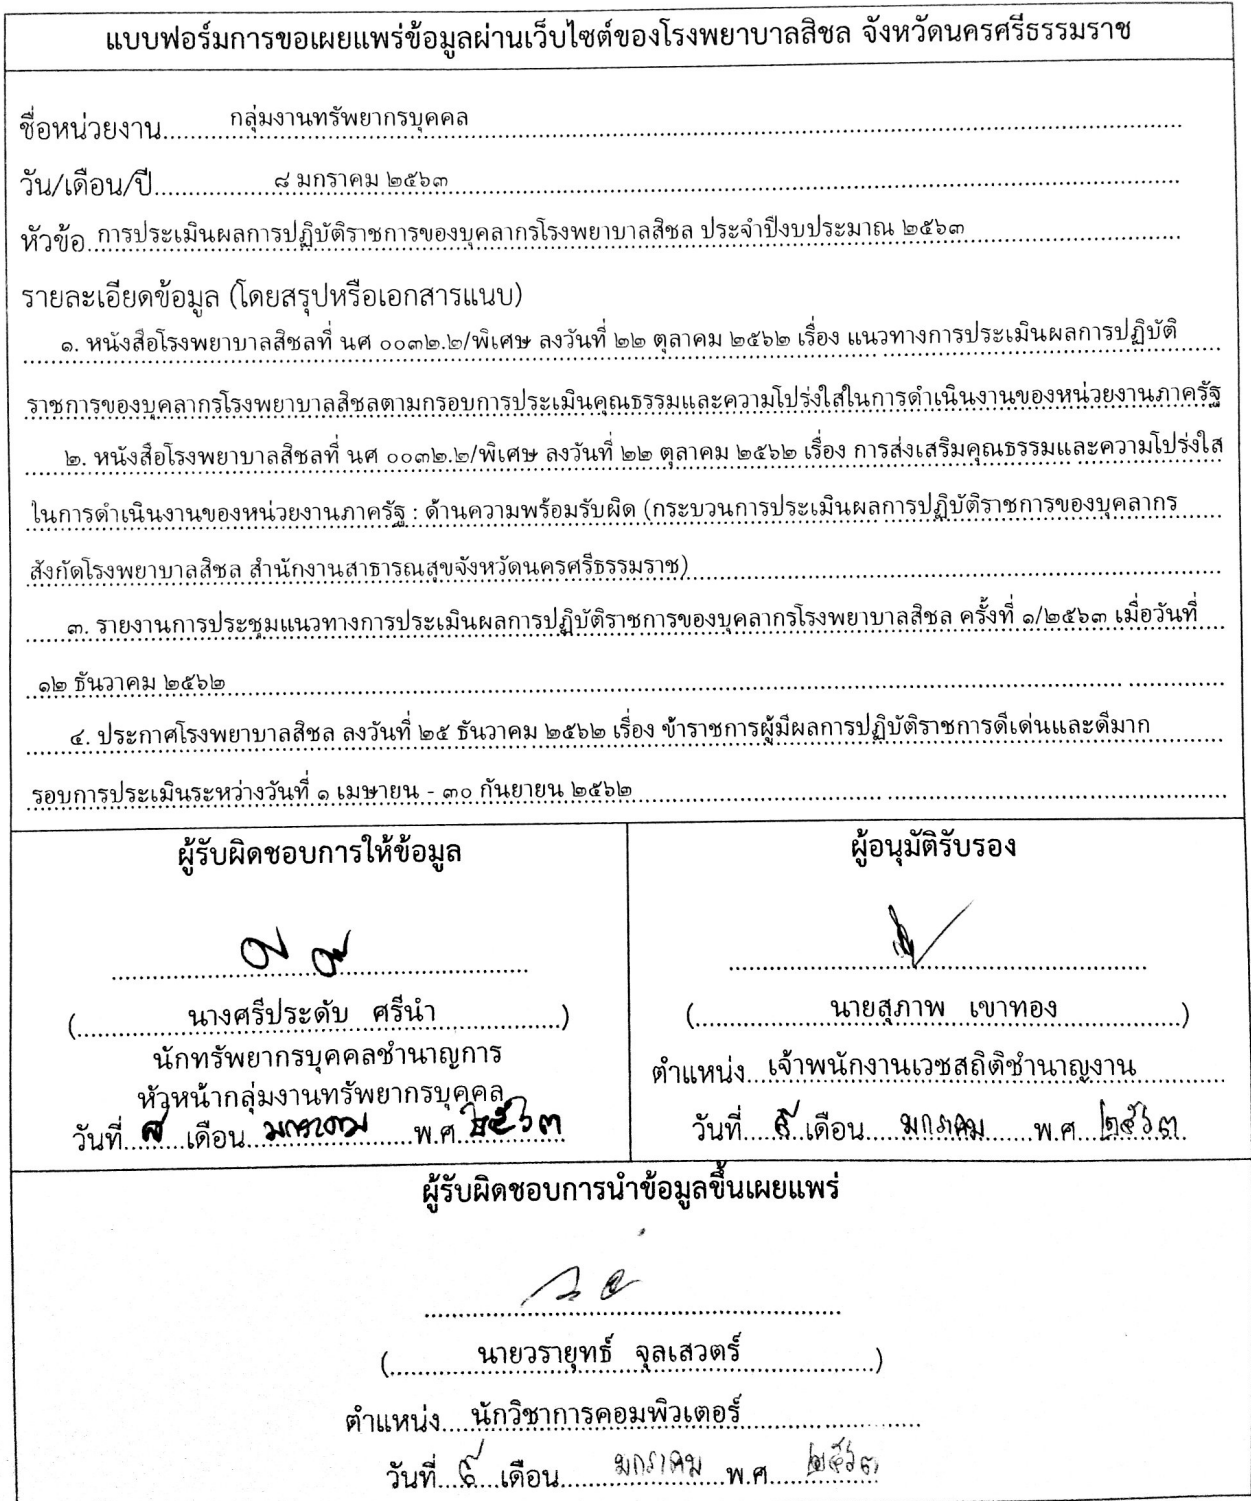 แบบฟอร์มการขอเผยแพร่ข้อมูลผ่านเว็บไซต์ของโรงพยาบาลสิชล จังหวัดนครศรีธรรมราช
ชื่อหน่วยงาน กลุ่มงานทรัพยากรบุคคล
วัน/เดือน/ปี ๘ มกราคม ๒๕๖๓
หัวข้อ การประเมินผลการปฏิบัติราชการของบุคลากรโรงพยาบาลสิชล ประจำปีงบประมาณ ๒๕๖๓
รายละเอียดข้อมูล (โดยสรุปหรือเอกสารแนบ)
๑. หนังสือโรงพยาบาลสิชลที่ นศ ๐๐๓๒.๒/พิเศษ ลงวันที่ ๒๒ ตุลาคม ๒๕๖๒ เรื่อง แนวทางการประเมินผลการปฏิบัติ
ราชการของบุคลากรโรงพยาบาลสิชลตามกรอบการประเมินคุณธรรมและความโปร่งใสในการดำเนินงานของหน่วยงานภาครัฐ
๒. หนังสือโรงพยาบาลสิชลที่ นศ ๐๐๓๒.๒/พิเศษ ลงวันที่ ๒๒ ตุลาคม ๒๕๖๒ เรื่อง การส่งเสริมคุณธรรมและความโปร่งใส
ในการดำเนินงานของหน่วยงานภาครัฐ : ด้านความพร้อมรับผิด (กระบวนการประเมินผลการปฏิบัติราชการของบุคลากร
สังกัดโรงพยาบาลสิชล สำนักงานสาธารณสุขจังหวัดนครศรีธรรมราช)
๓. รายงานการประชุมแนวทางการประเมินผลการปฏิบัติราชการของบุคลากรโรงพยาบาลสิชล ครั้งที่ ๑/๒๕๖๓ เมื่อวันที่
๑๒ ธันวาคม ๒๕๖๒
๔. ประกาศโรงพยาบาลสิชล ลงวันที่ ๒๕ ธันวาคม ๒๕๖๒ เรื่อง ข้าราชการผู้มีผลการปฏิบัติราชการดีเด่นและดีมาก
รอบการประเมินระหว่างวันที่ ๑ เมษายน - ๓๐ กันยายน ๒๕๖๒
ผู้รับผิดชอบการให้ข้อมูล
(นางศรีประดับ ศรีนำ)
นักทรัพยากรบุคคลชำนาญการ
หัวหน้ากลุ่มงานทรัพยากรบุคคล
วันที่ เดือน มกราคม พ.ศ. ๒๕๖๓
ผู้อนุมัติรับรอง
(นายสุภาพ เขาทอง)
ตำแหน่ง เจ้าพนักงานเวชสถิติชำนาญงาน
วันที่ เดือน มกราคม พ.ศ. ๒๕๖๓
ผู้รับผิดชอบการนำข้อมูลขึ้นเผยแพร่
(นายวรายุทธ์ จุลเสวตร์)
ตำแหน่ง นักวิชาการคอมพิวเตอร์
วันที่ เดือน มกราคม พ.ศ. ๒๕๖๓